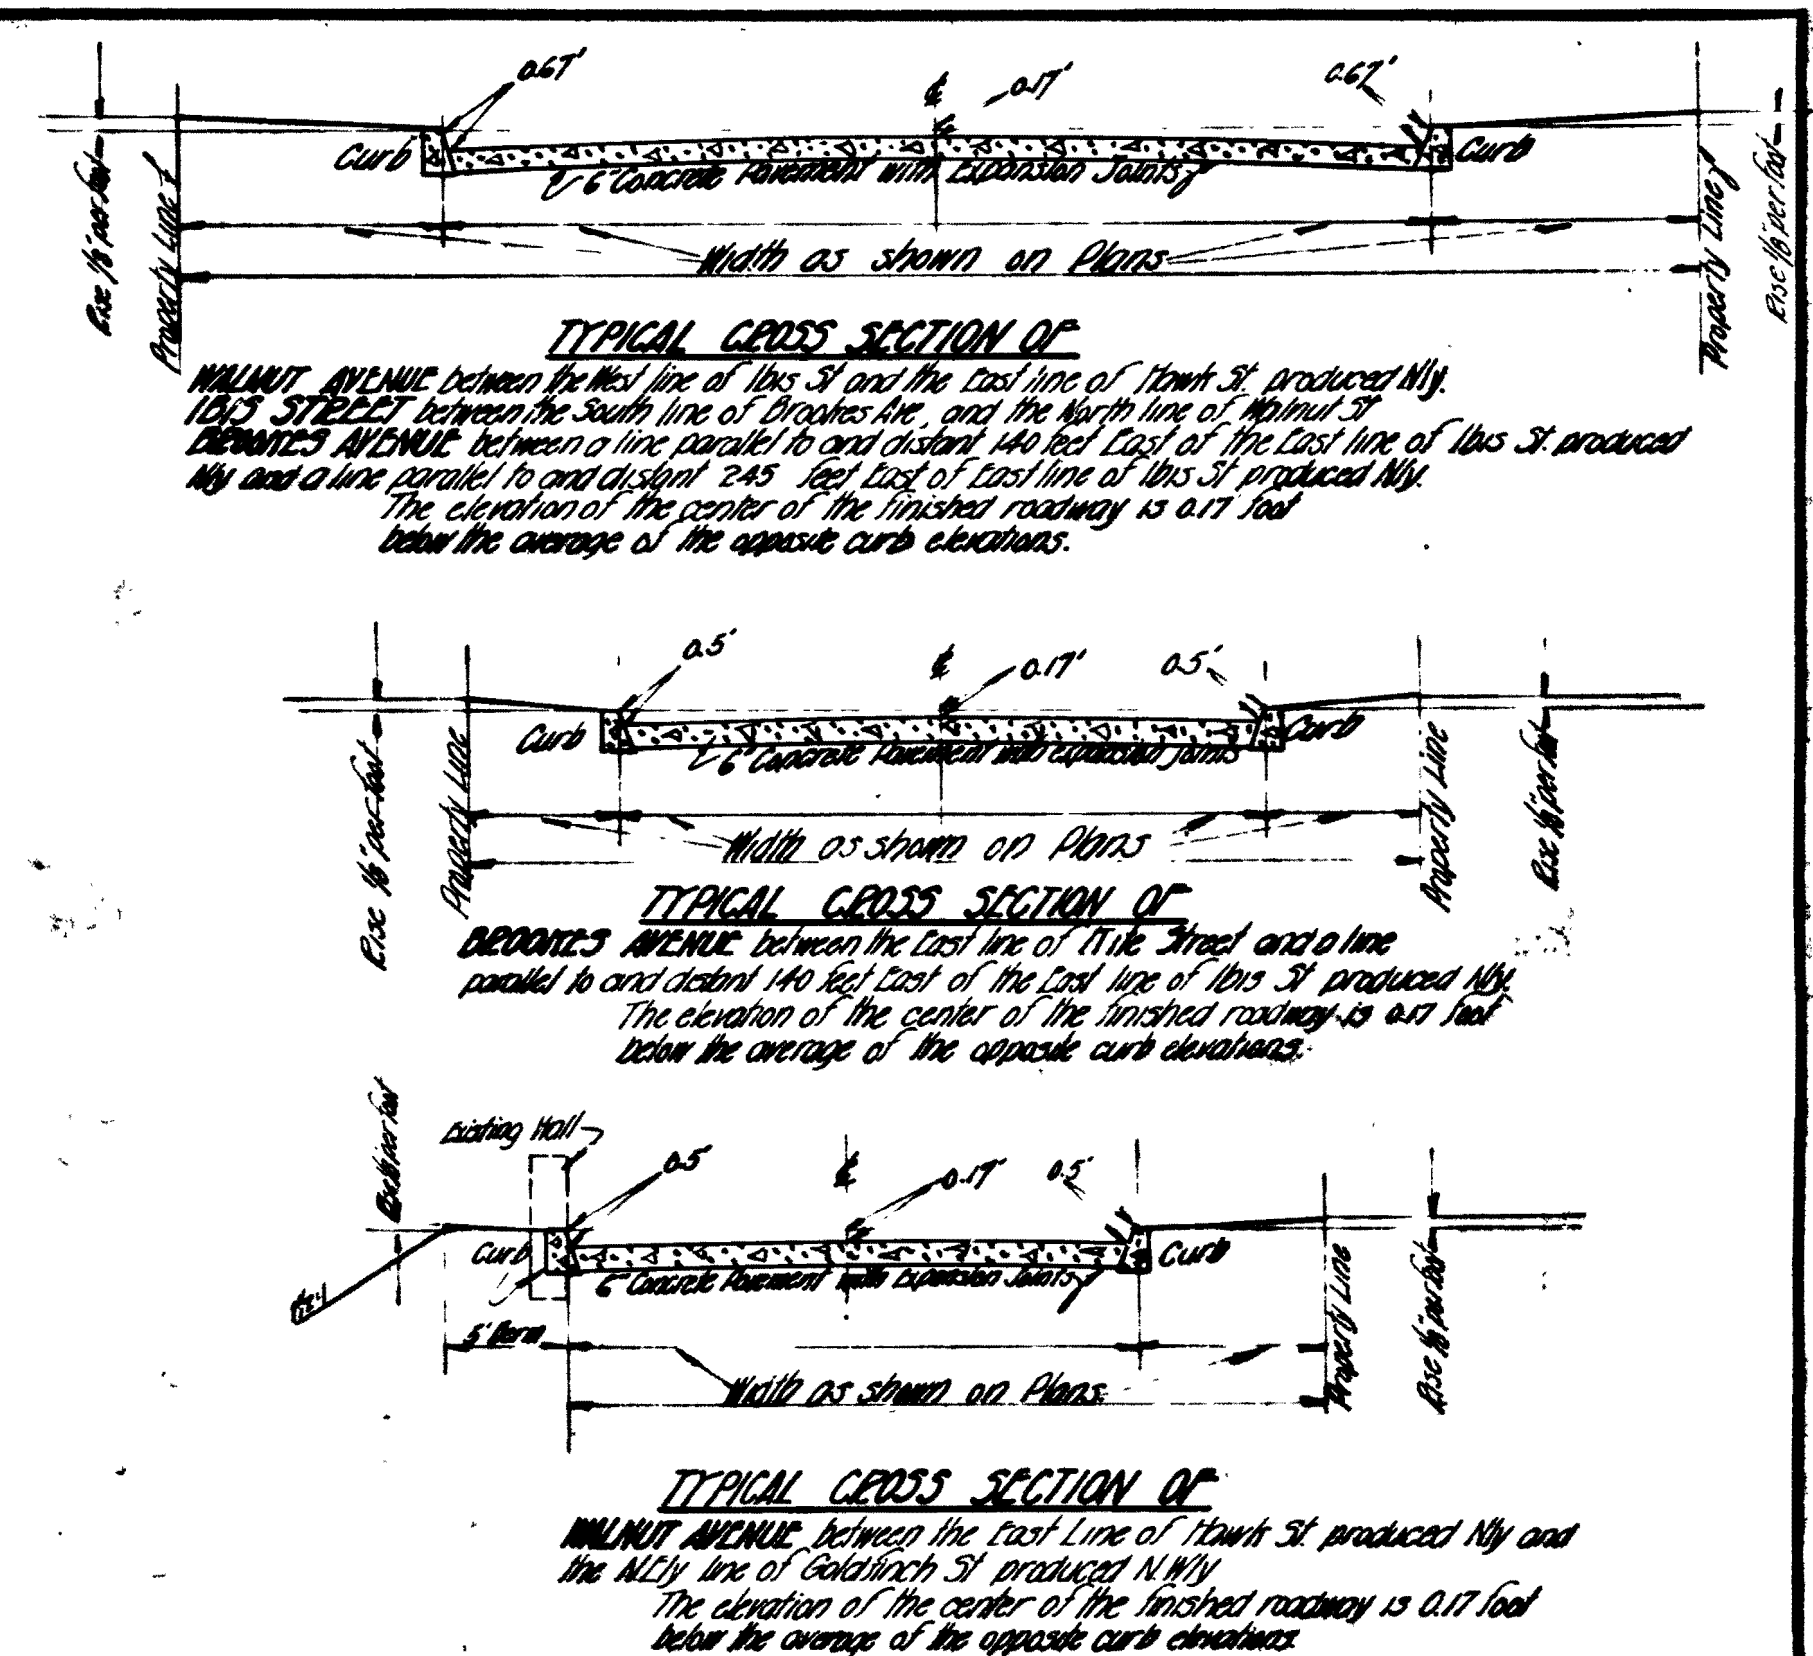 0.67' ℄ 0.17' 0.67'
Curb Curb
6" Concrete Pavement with Expansion Joints
Rise 1/8" per foot
Property Line
Width as shown on Plans
Property Line
Rise 1/8" per foot
TYPICAL CROSS SECTION OF
WALNUT AVENUE between the West line of Ibis St and the East line of Hawk St. produced Nly.
IBIS STREET between the South line of Brookes Ave, and the North line of Walnut St
BROOKES AVENUE between a line parallel to and distant 140 feet East of the East line of Ibis St. produced
Nly and a line parallel to and distant 245 feet East of East line of Ibis St produced Nly.
The elevation of the center of the finished roadway is 0.17 foot
below the average of the opposite curb elevations.
0.5' ℄ 0.17' 0.5'
Curb Curb
6" Concrete Pavement with expansion joints
Rise 1/8" per foot
Property Line
Width as shown on Plans
Property Line
Rise 1/8" per foot
TYPICAL CROSS SECTION OF
BROOKES AVENUE between the East line of Street and a line
parallel to and distant 140 feet East of the East line of Ibis St produced Nly.
The elevation of the center of the finished roadway is 0.17 foot
below the average of the opposite curb elevations.
Rise 1/8" per foot
Existing Wall
0.5' ℄ 0.17' 0.5'
Curb Curb
6" Concrete Pavement with Expansion Joints
5' Berm
Width as shown on Plans.
Property Line
Rise 1/8" per foot
TYPICAL CROSS SECTION OF
WALNUT AVENUE between the East Line of Hawk St. produced Nly and
the N.Ely line of Goldfinch St produced N.Wly
The elevation of the center of the finished roadway is 0.17 foot
below the average of the opposite curb elevations